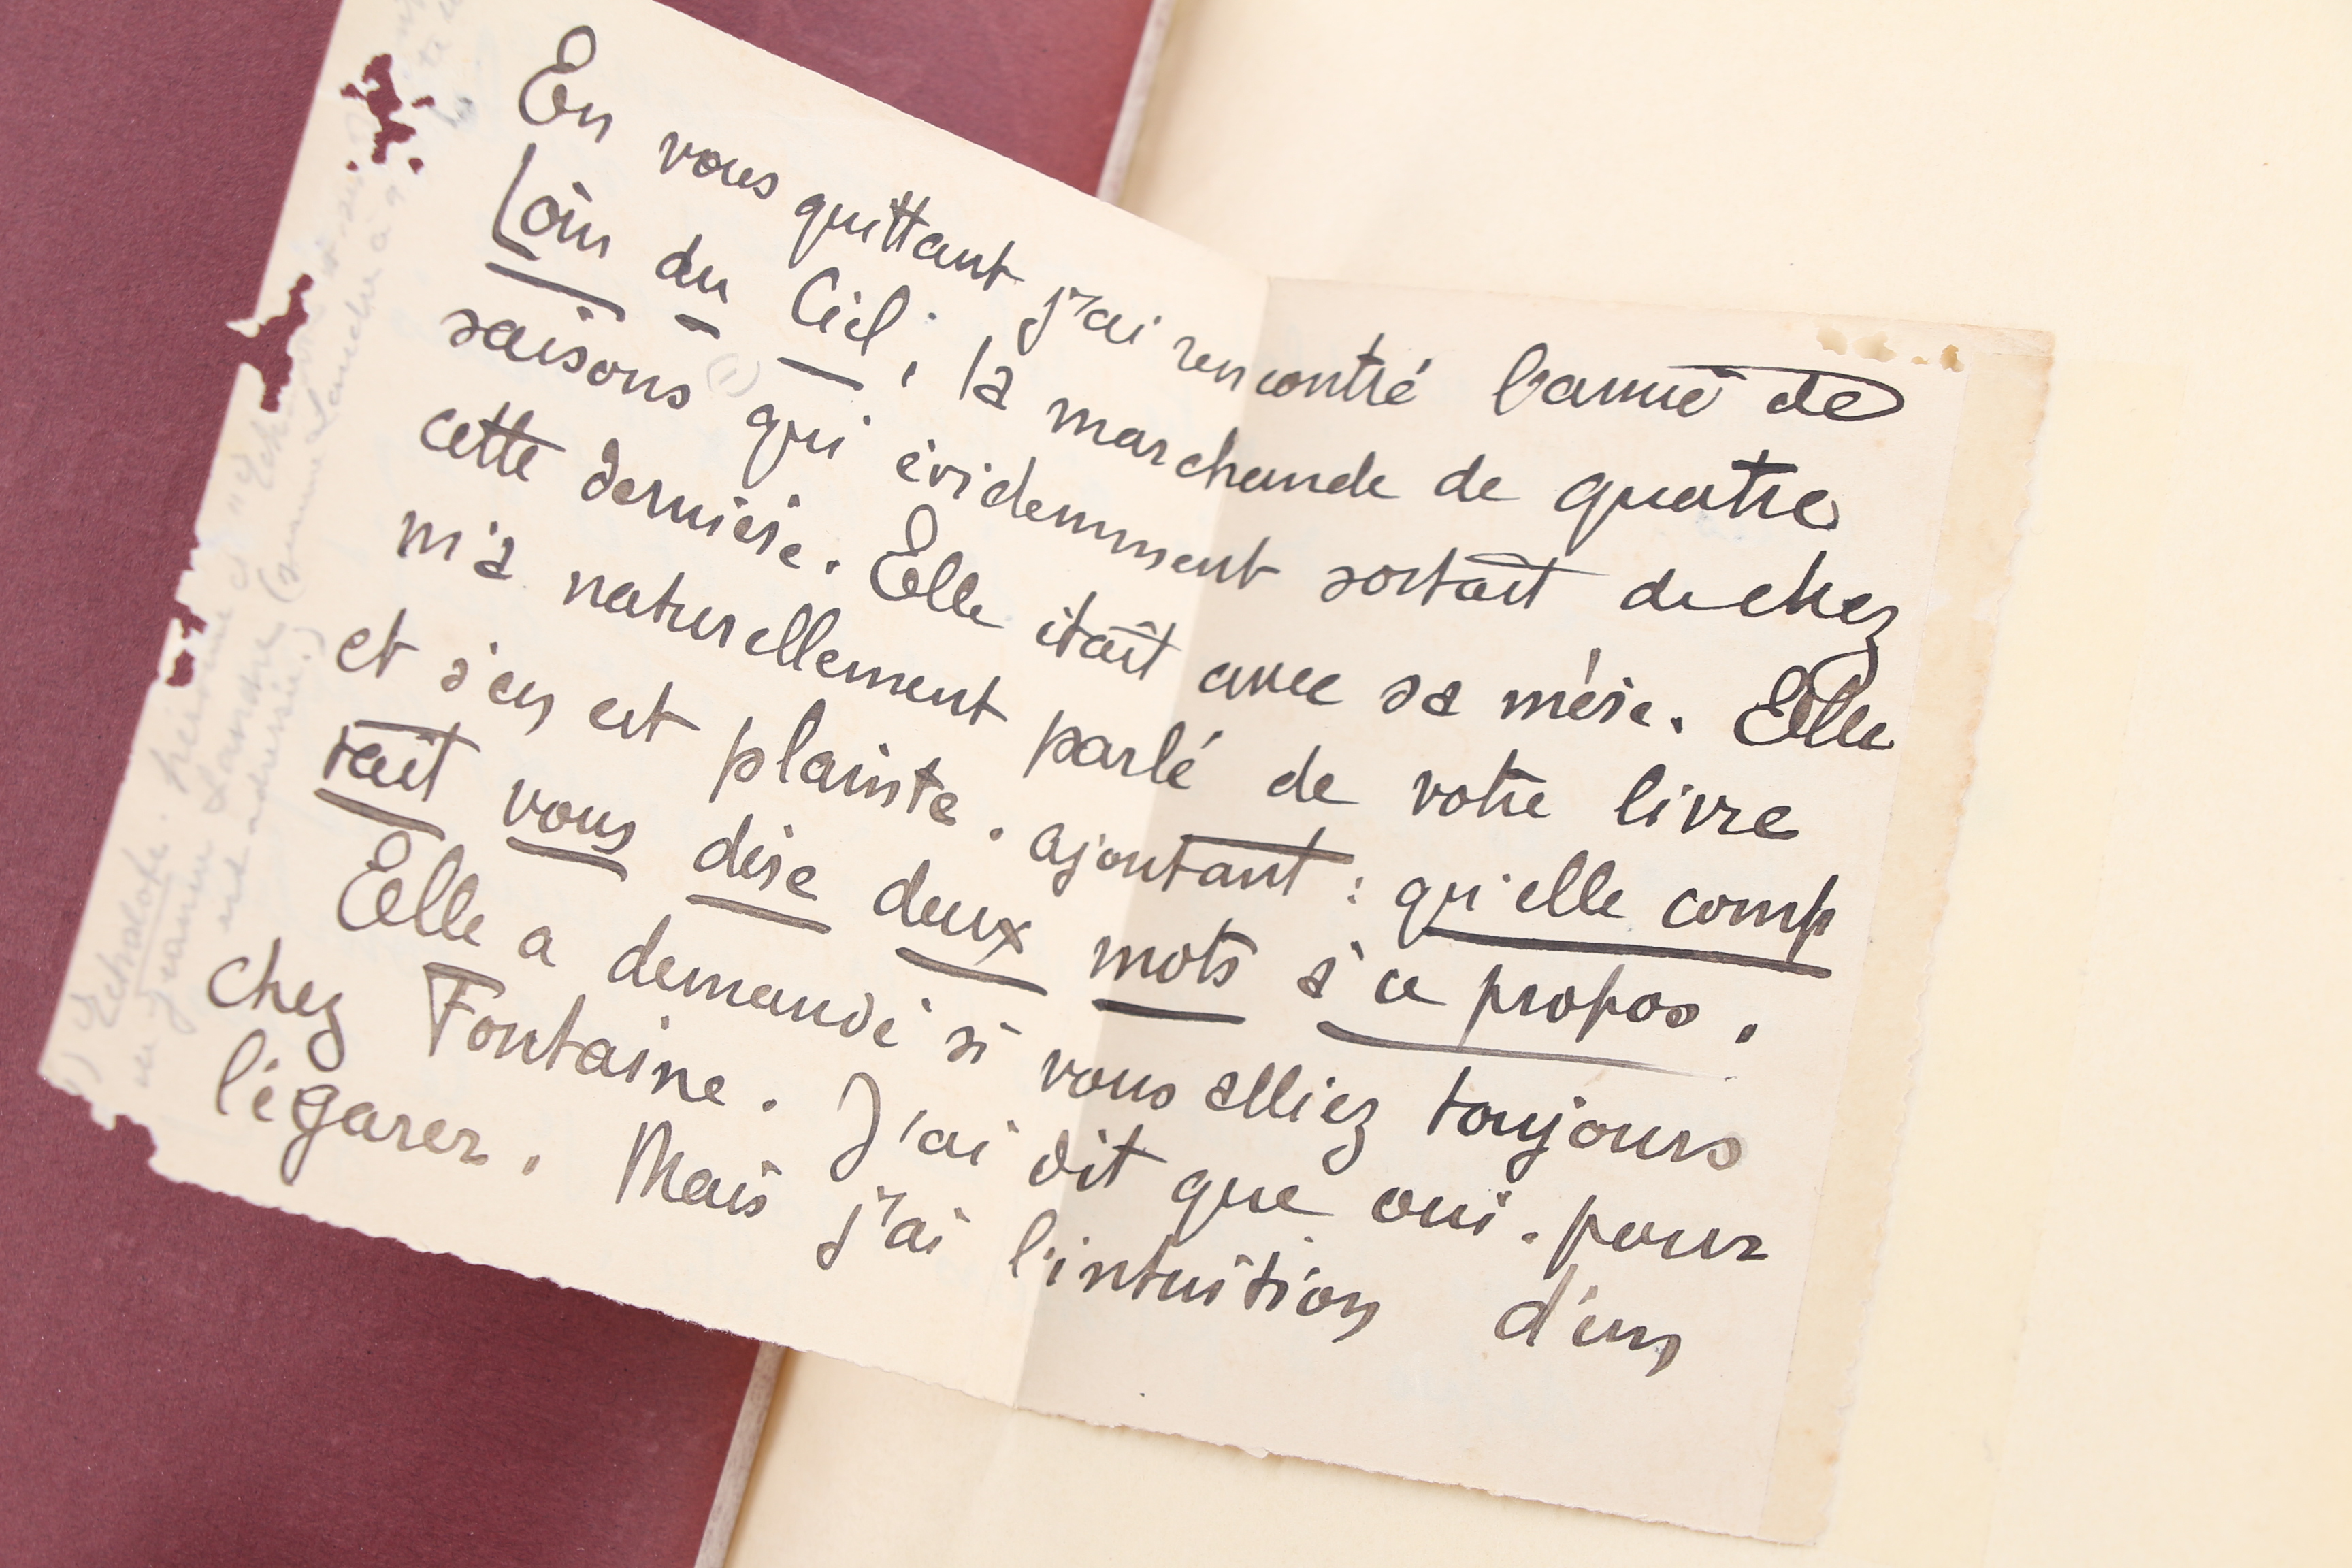 En vous quittant j'ai rencontré l'amie de
Loin du Ciel, la marchande de quatre
saisons (1) qui évidemment sortait de chez
cette dernière. Elle était avec sa mère. Elle
m'a naturellement parlé de votre livre
et s'en est plainte. ajoutant : qu'elle comp
tait vous dire deux mots à ce propos.
Elle a demandé si vous alliez toujours
chez Fontaine. J'ai dit que oui. pour
l'égarer. Mais j'ai l'intuition d'un
1) Echalote
est adressée.)